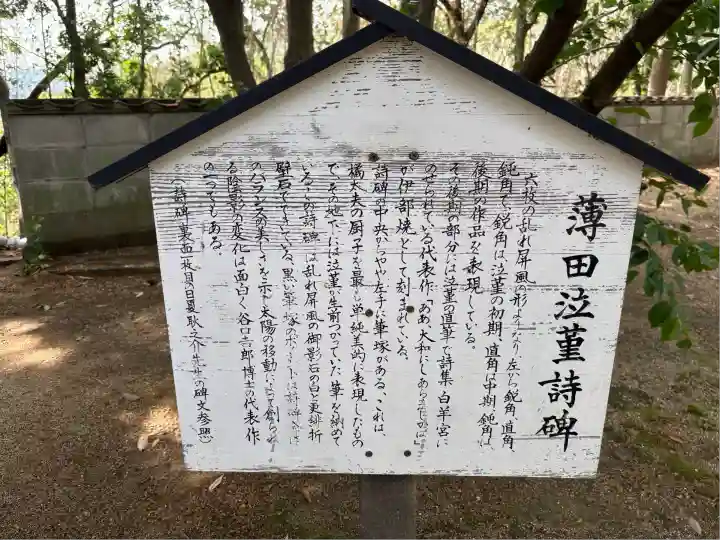 薄田泣菫詩碑
六枚の乱れ屏風の形よりなり、左から鋭角、直角、
鈍角で、鋭角は泣菫の初期、直角は中期、鈍角は、
後期の作品を表現している。
その後期の部分には泣菫の直筆で詩集 白羊宮に
のせられている代表作「ああ大和にしあらましかば」
が伊部焼として刻まれている。
詩碑の中央からやや左手に筆塚がある、これは、
橘大夫の厨子を最も単純美的に表現したもの
で、その地下には泣菫が生前つかっていた筆を納めて
いる。この詩碑は乱れ屏風の御影石の白と更緋折
壁石でできている。黒い筆塚のポイントは詩碑
のバランスの美しさを示し太陽の移動によって創られ
る陰影の変化は面白く谷口吉郎博士の代表作
の一つでもある。
(詩碑、裏面一枚目の日夏耿之介先生の碑文参照)